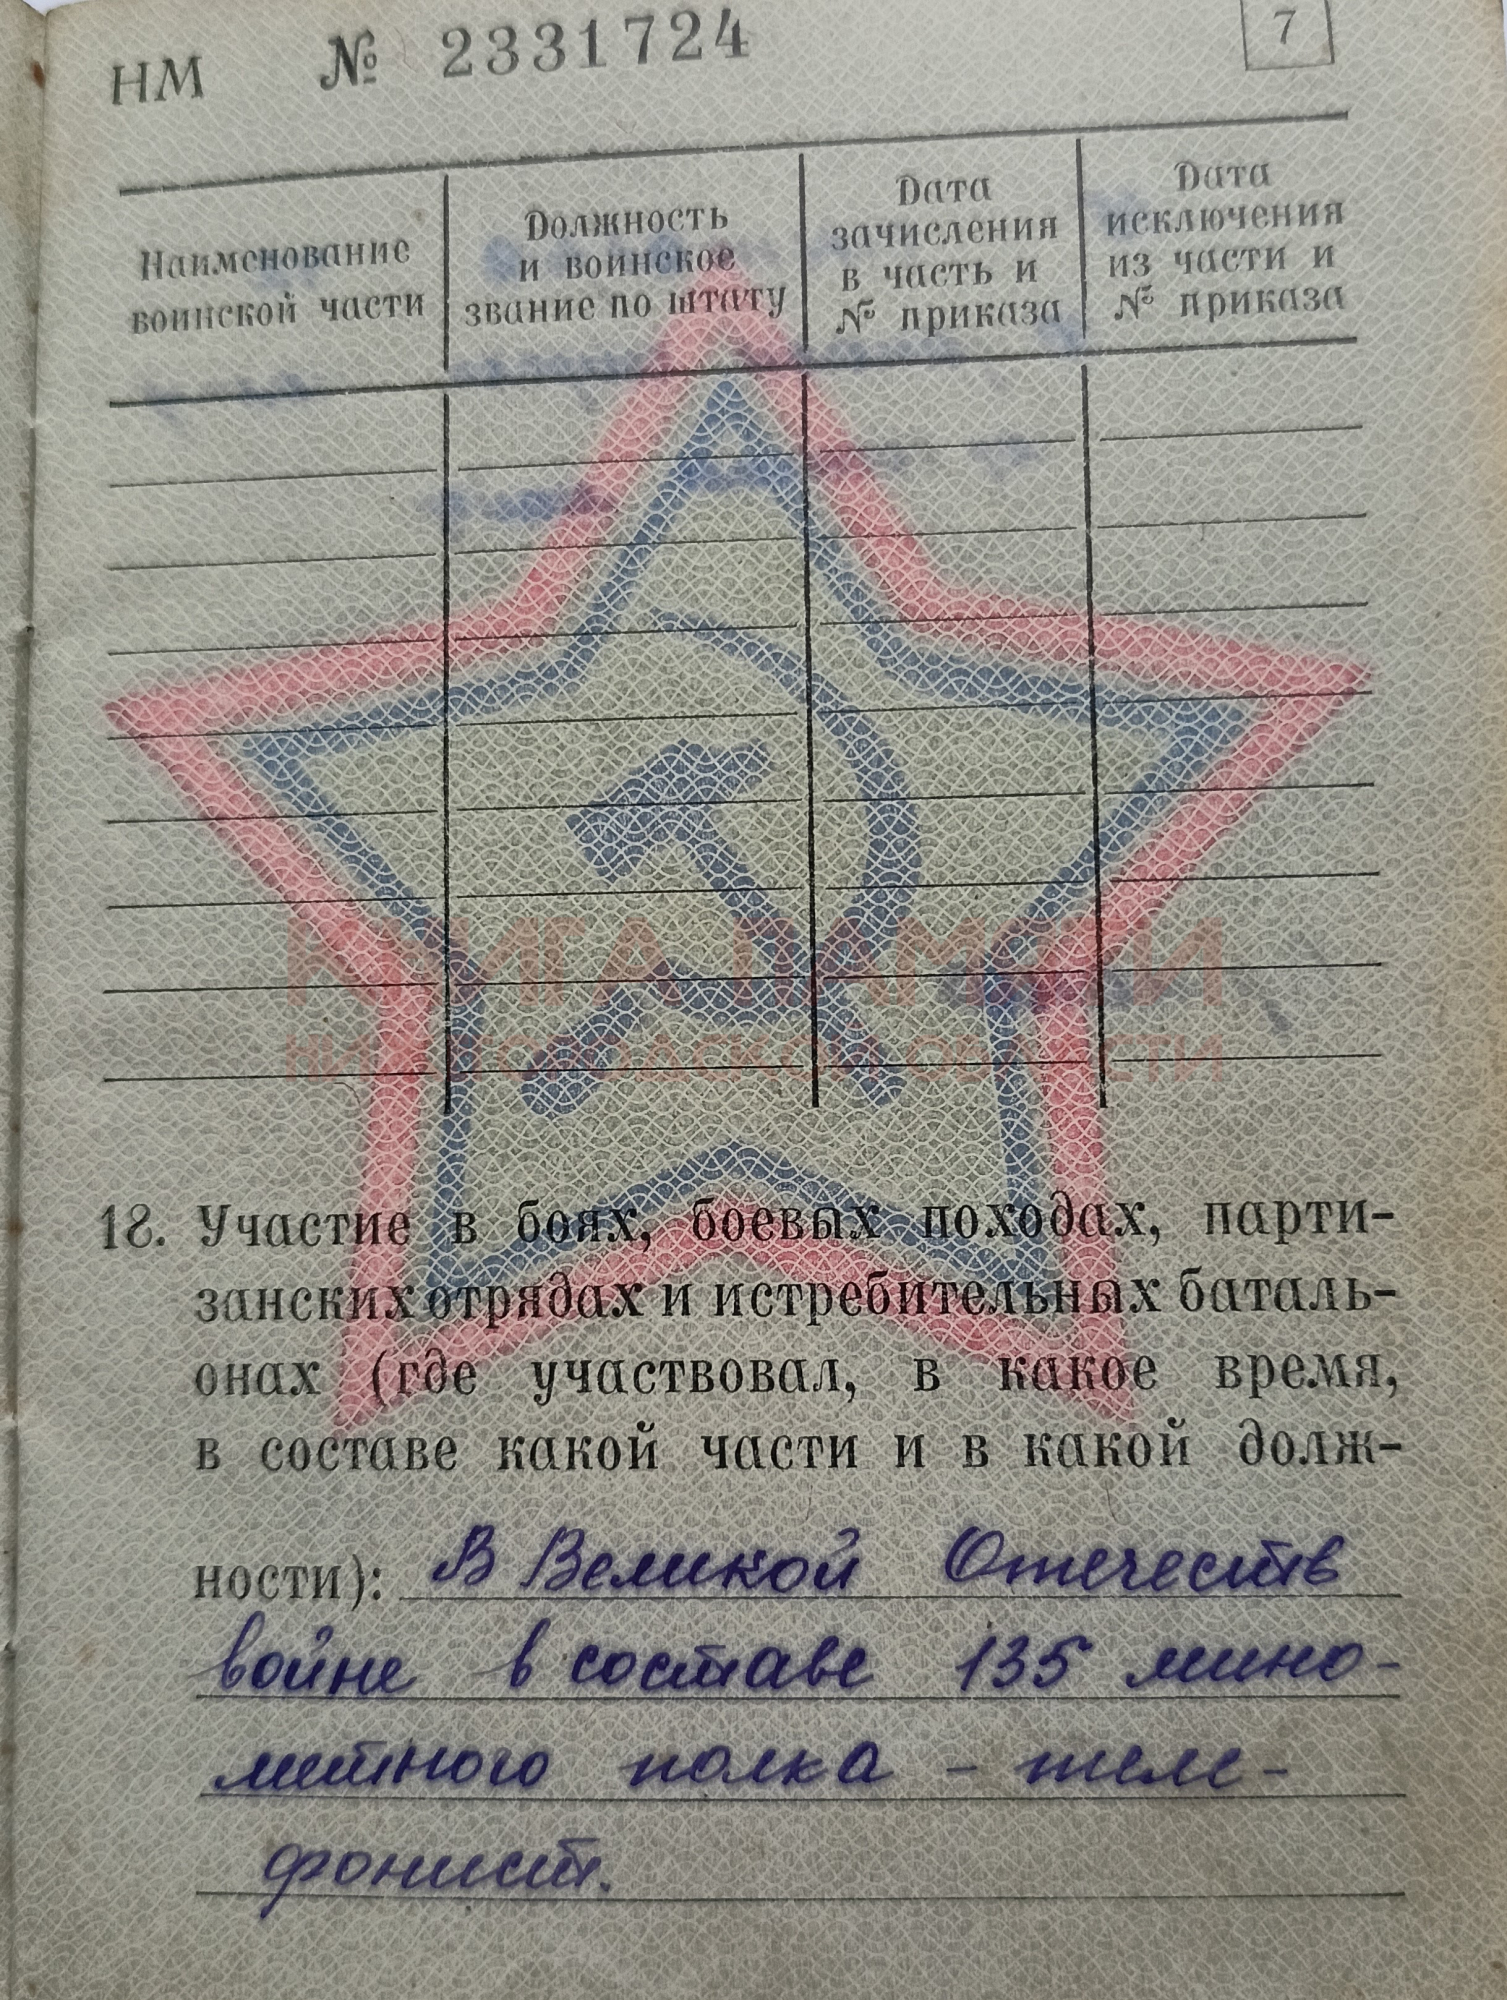 НМ № 2331724 7
Наименование воинской части
Должность и воинское звание по штату
Дата зачисления в часть и № приказа
Дата исключения из части и № приказа
КНИГА ПАМЯТИ
НИЖЕГОРОДСКОЙ ОБЛАСТИ
18. Участие в боях, боевых походах, парти-
занских отрядах и истребительных баталь-
онах (где участвовал, в какое время,
в составе какой части и в какой долж-
ности): В Великой Отечеств
войне в составе 135 мино-
метного полка - теле-
фонист.